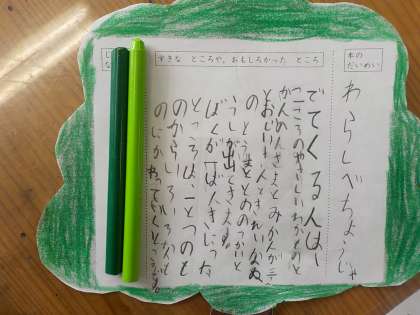 本の
だいめい
わらしべちょうじゃ
すきな ところや、おもしろかった ところ
でてくる人は、
こころのやさしいわかものと
かんのんさまとみかんが三
の と
うしが出てきます。
ぼくが一ばんきにいった
ところは、一つのも
のからいろいろなも
のにかわっていくところです。